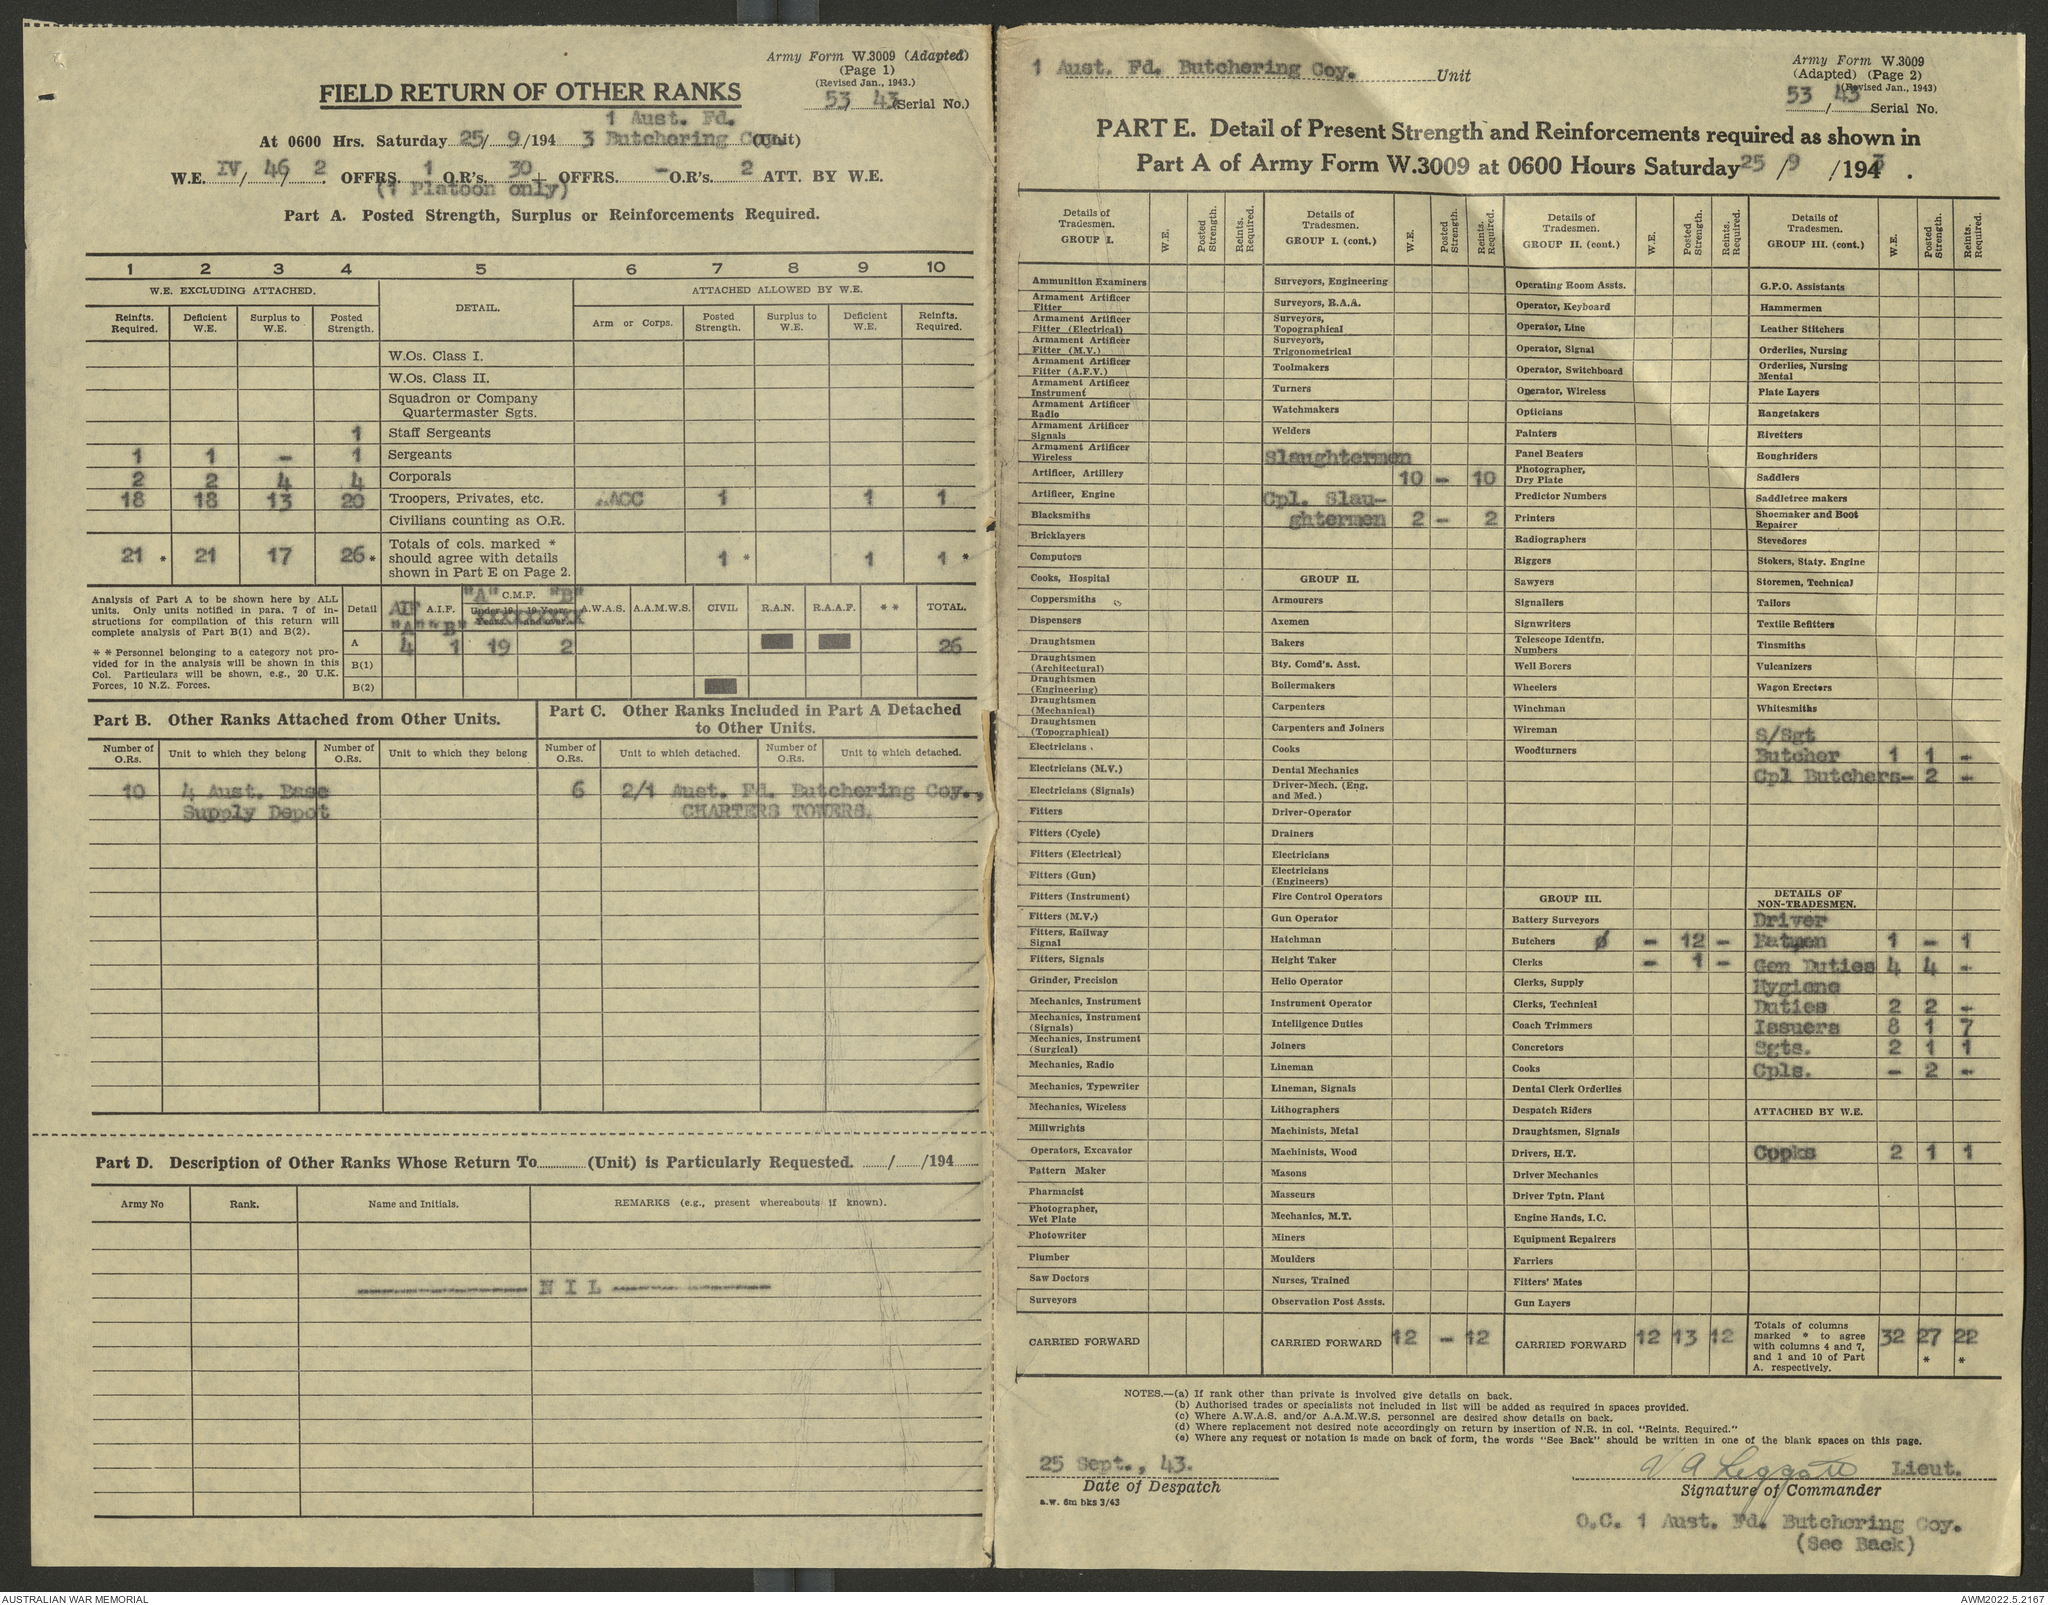 Army Form W.3009 (Adapted)
(Page 1)
(Revised Jan., 1943.)
53/ 43 (Serial No.)
FIELD RETURN OF OTHER RANKS
1 Aust. Fd.
At 0600 Hrs. Saturday 25/ 9 /194 3 Butchering Coy. (Unit)
W.E. IV/ 46/ 2 OFFRS. 1 O.R's. 30 + OFFRS. - O.R's. 2 ATT. BY W.E.
(1 Platoon only)
Part A. Posted Strength, Surplus or Reinforcements Required.
1 2 3 4 5 6 7 8 9 10
W.E. EXCLUDING ATTACHED. DETAIL. ATTACHED ALLOWED BY W.E.
Reinfts. Required. Deficient W.E. Surplus to W.E. Posted Strength. Arm or Corps. Posted Strength. Surplus to W.E. Deficient W.E. Reinfts. Required.
W.Os. Class I.
W.Os. Class II.
Squadron or Company
Quartermaster Sgts.
1 Staff Sergeants
1 1 - 1 Sergeants
2 2 4 4 Corporals
18 18 13 20 Troopers, Privates, etc. AACC 1 1 1
Civilians counting as O.R.
21 * 21 17 26 * Totals of cols. marked * should agree with details shown in Part E on Page 2. 1 * 1 1 *
Analysis of Part A to be shown here by ALL
units. Only units notified in para. 7 of in-
structions for compilation of this return will
complete analysis of Part B(1) and B(2).
* * Personnel belonging to a category not pro-
vided for in the analysis will be shown in this
Col. Particulars will be shown, e.g., 20 U.K.
Forces, 10 N.Z. Forces.
Detail AIF "A" A.I.F. "B" "A" C.M.F. "B" Under 19 Years. 19 Years and over. A.W.A.S. A.A.M.W.S. CIVIL R.A.N. R.A.A.F. * * TOTAL.
A 4 1 19 2 26
B(1)
B(2)
Part B. Other Ranks Attached from Other Units.
Number of O.Rs. Unit to which they belong Number of O.Rs. Unit to which they belong
10 4 Aust. Base
Supply Depot
Part C. Other Ranks Included in Part A Detached
to Other Units.
Number of O.Rs. Unit to which detached. Number of O.Rs. Unit to which detached.
6 2/1 Aust. Fd. Butchering Coy.,
CHARTERS TOWERS.
Part D. Description of Other Ranks Whose Return To............(Unit) is Particularly Requested. ....../....../194......
Army No Rank. Name and Initials. REMARKS (e.g., present whereabouts if known).
N I L
1 Aust. Fd. Butchering Coy. Unit
Army Form W.3009
(Adapted) (Page 2)
(Revised Jan., 1943)
53 / 43 Serial No.
PART E. Detail of Present Strength and Reinforcements required as shown in
Part A of Army Form W.3009 at 0600 Hours Saturday 25 /9 /1943 .
Details of Tradesmen. GROUP I. W.E. Posted Strength. Reints. Required.
Ammunition Examiners
Armament Artificer Fitter
Armament Artificer Fitter (Electrical)
Armament Artificer Fitter (M.V.)
Armament Artificer Fitter (A.F.V.)
Armament Artificer Instrument
Armament Artificer Radio
Armament Artificer Signals
Armament Artificer Wireless
Artificer, Artillery
Artificer, Engine
Blacksmiths
Bricklayers
Computors
Cooks, Hospital
Coppersmiths
Dispensers
Draughtsmen
Draughtsmen (Architectural)
Draughtsmen (Engineering)
Draughtsmen (Mechanical)
Draughtsmen (Topographical)
Electricians
Electricians (M.V.)
Electricians (Signals)
Fitters
Fitters (Cycle)
Fitters (Electrical)
Fitters (Gun)
Fitters (Instrument)
Fitters (M.V.)
Fitters, Railway Signal
Fitters, Signals
Grinder, Precision
Mechanics, Instrument
Mechanics, Instrument (Signals)
Mechanics, Instrument (Surgical)
Mechanics, Radio
Mechanics, Typewriter
Mechanics, Wireless
Millwrights
Operators, Excavator
Pattern Maker
Pharmacist
Photographer, Wet Plate
Photowriter
Plumber
Saw Doctors
Surveyors
CARRIED FORWARD
Details of Tradesmen. GROUP I. (cont.) W.E. Posted Strength. Reints. Required.
Surveyors, Engineering
Surveyors, R.A.A.
Surveyors, Topographical
Surveyors, Trigonometrical
Toolmakers
Turners
Watchmakers
Welders
Slaughtermen
10 - 10
Cpl. Slau-
ghtermen 2 - 2
GROUP II.
Armourers
Axemen
Bakers
Bty. Comd's. Asst.
Boilermakers
Carpenters
Carpenters and Joiners
Cooks
Dental Mechanics
Driver-Mech. (Eng. and Med.)
Driver-Operator
Drainers
Electricians
Electricians (Engineers)
Fire Control Operators
Gun Operator
Hatchman
Height Taker
Helio Operator
Instrument Operator
Intelligence Duties
Joiners
Lineman
Lineman, Signals
Lithographers
Machinists, Metal
Machinists, Wood
Masons
Masseurs
Mechanics, M.T.
Miners
Moulders
Nurses, Trained
Observation Post Assts.
CARRIED FORWARD 12 - 12
Details of Tradesmen. GROUP II. (cont.) W.E. Posted Strength. Reints. Required.
Operating Room Assts.
Operator, Keyboard
Operator, Line
Operator, Signal
Operator, Switchboard
Operator, Wireless
Opticians
Painters
Panel Beaters
Photographer, Dry Plate
Predictor Numbers
Printers
Radiographers
Riggers
Sawyers
Signallers
Signwriters
Telescope Identfn. Numbers
Well Borers
Wheelers
Winchman
Wireman
Woodturners
GROUP III.
Battery Surveyors
Butchers ø - 12 -
Clerks - 1 -
Clerks, Supply
Clerks, Technical
Coach Trimmers
Concretors
Cooks
Dental Clerk Orderlies
Despatch Riders
Draughtsmen, Signals
Drivers, H.T.
Driver Mechanics
Driver Tptn. Plant
Engine Hands, I.C.
Equipment Repairers
Farriers
Fitters' Mates
Gun Layers
CARRIED FORWARD 12 13 12
Details of Tradesmen. GROUP III. (cont.) W.E. Posted Strength. Reints. Required.
G.P.O. Assistants
Hammermen
Leather Stitchers
Orderlies, Nursing
Orderlies, Nursing Mental
Plate Layers
Rangetakers
Rivetters
Roughriders
Saddlers
Saddletree makers
Shoemaker and Boot Repairer
Stevedores
Stokers, Staty. Engine
Storemen, Technical
Tailors
Textile Refitters
Tinsmiths
Vulcanizers
Wagon Erectors
Whitesmiths
S/Sgt
Butcher 1 1 -
Cpl Butchers- 2 -
DETAILS OF NON-TRADESMEN.
Driver
Batmen 1 - 1
Gen Duties 4 4 -
Hygiene
Duties 2 2 -
Issuers 8 1 7
Sgts. 2 1 1
Cpls. - 2 -
ATTACHED BY W.E.
Cooks 2 1 1
Totals of columns marked * to agree with columns 4 and 7, and 1 and 10 of Part A. respectively. 32 27 * 22 *
NOTES.—(a) If rank other than private is involved give details on back.
(b) Authorised trades or specialists not included in list will be added as required in spaces provided.
(c) Where A.W.A.S. and/or A.A.M.W.S. personnel are desired show details on back.
(d) Where replacement not desired note accordingly on return by insertion of N.R. in col. "Reints. Required."
(e) Where any request or notation is made on back of form, the words "See Back" should be written in one of the blank spaces on this page.
25 Sept., 43.
Date of Despatch
a.w. 6m bks 3/43
V A Leggatt Lieut.
Signature of Commander
O.C. 1 Aust. Fd. Butchering Coy.
(See Back)
AUSTRALIAN WAR MEMORIAL
AWM2022.5.2167